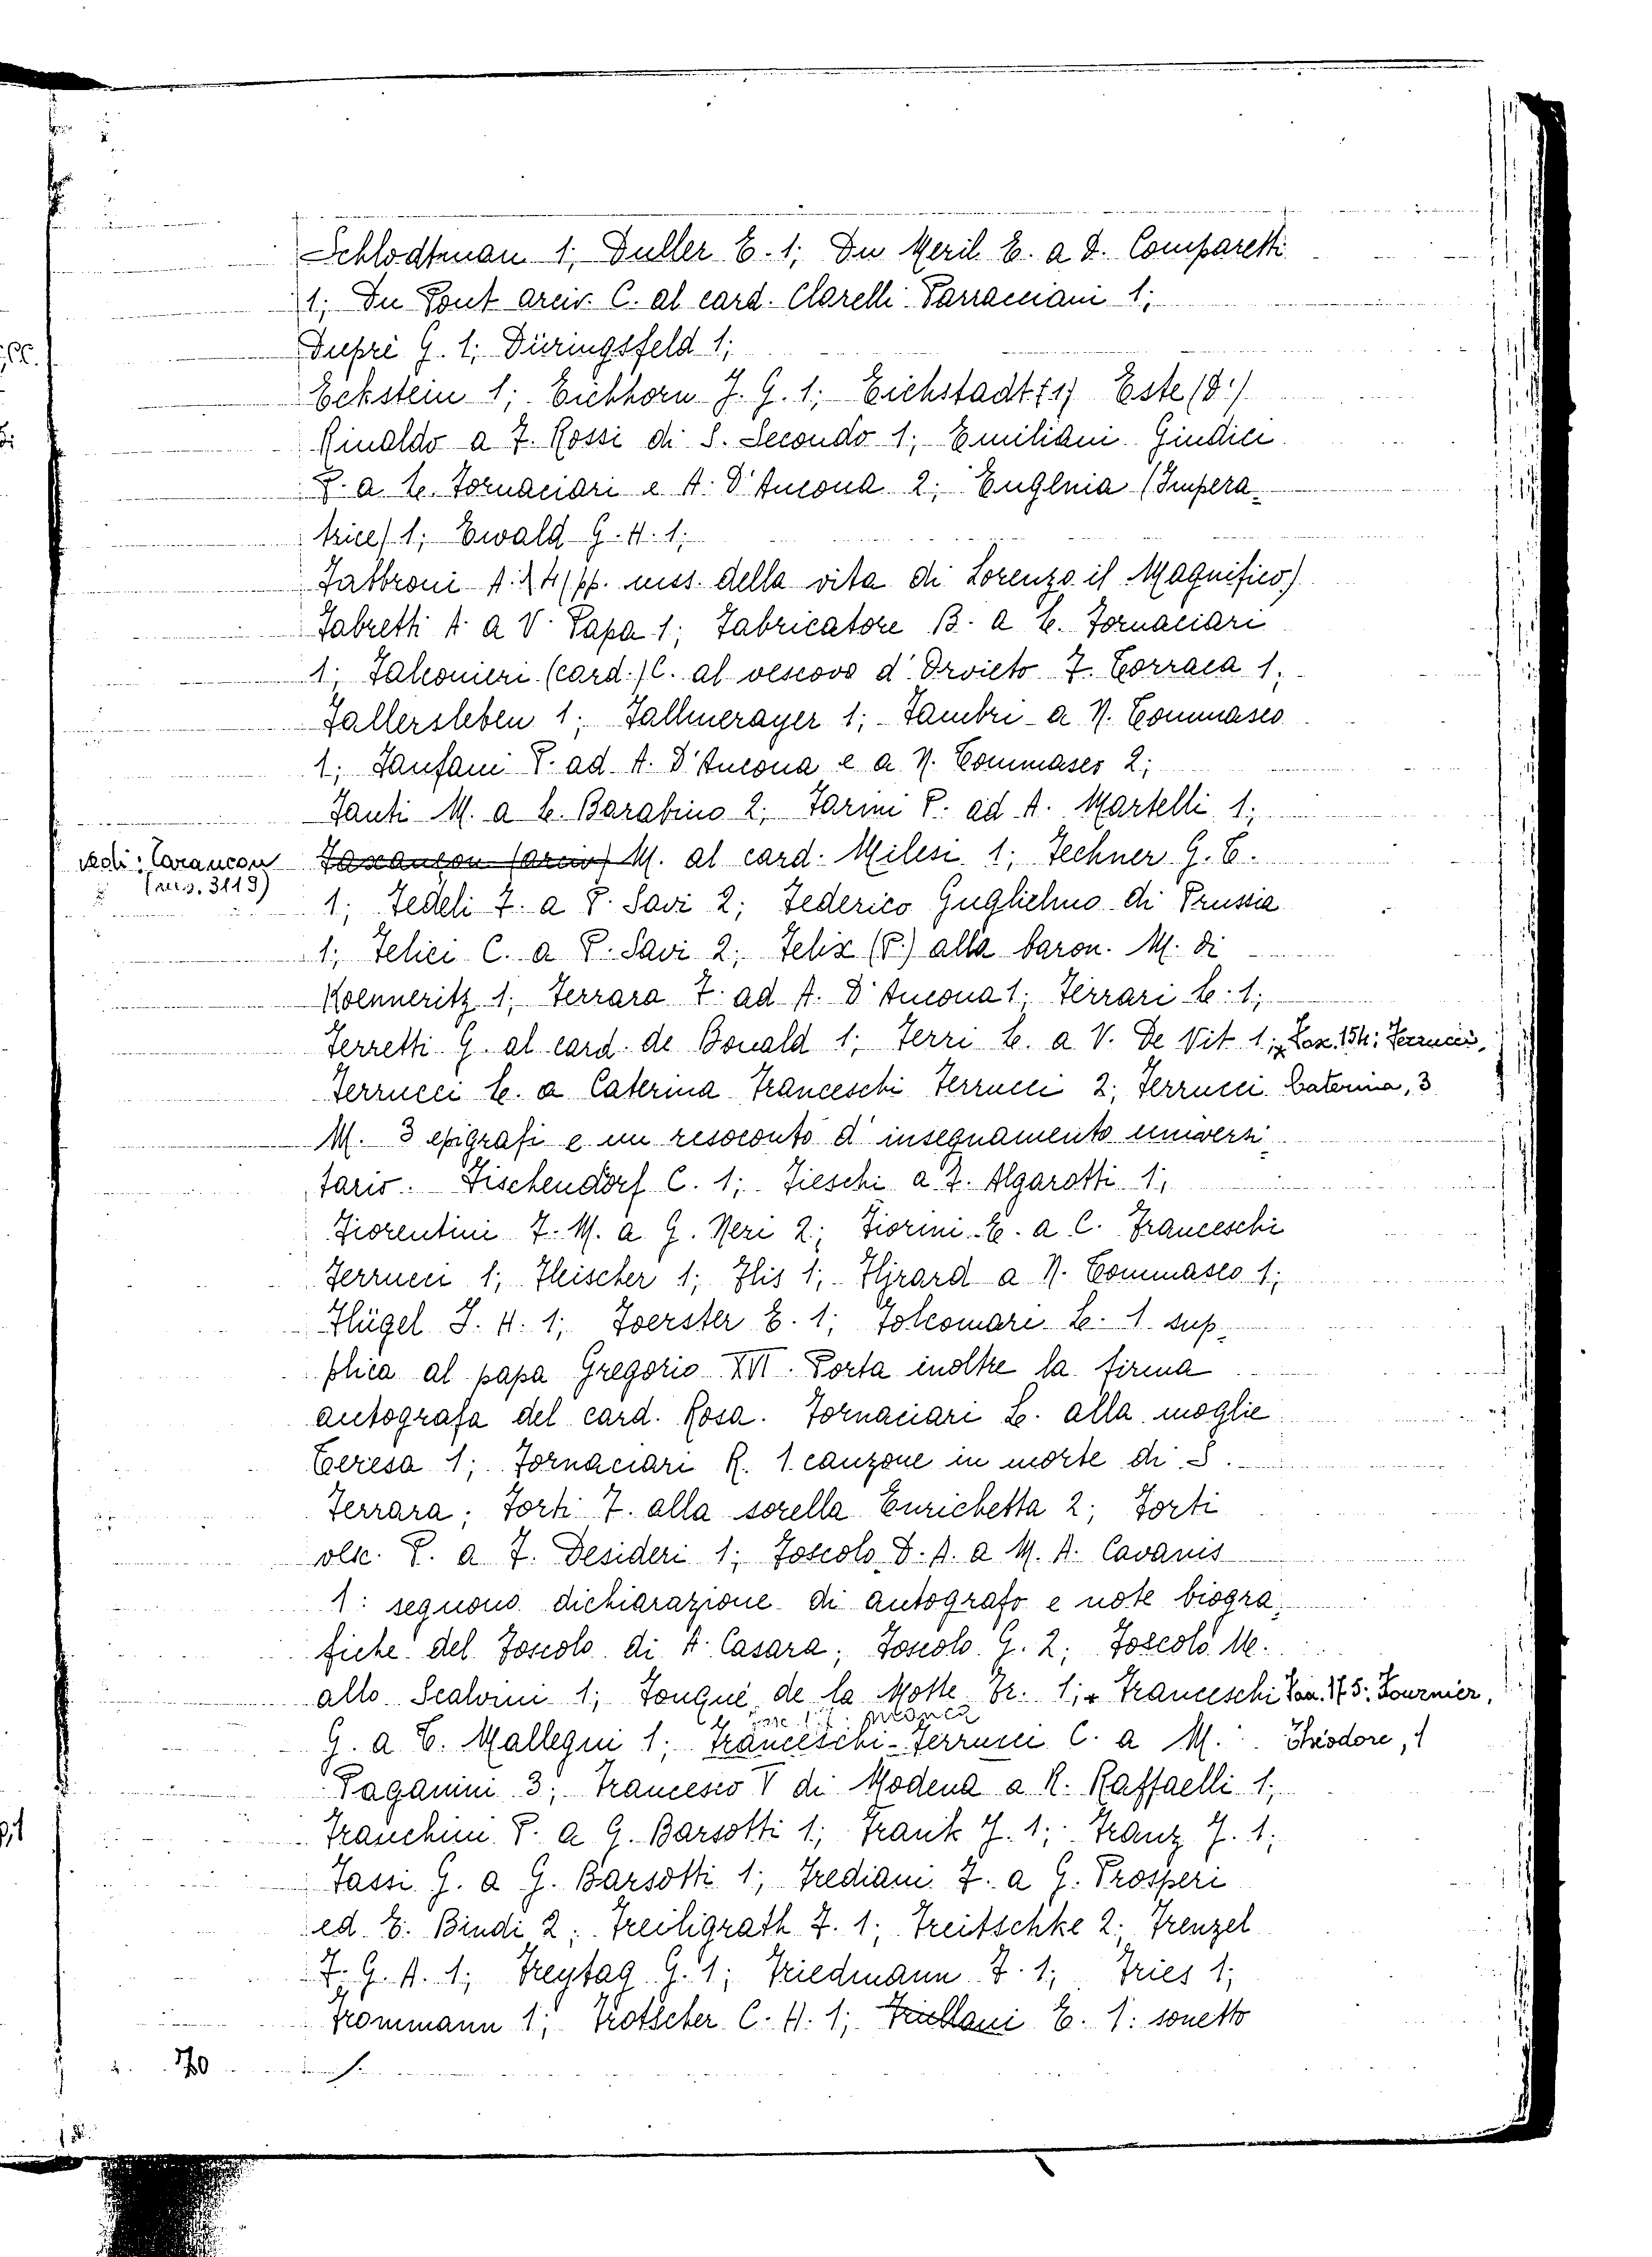 Schlodtman 1; Duller E. 1; Du Meril E. a D. Comparetti
1; Du Pont arciv. C. al card. Clarelli Parracciani 1;
Dupré G. 1; Düringsfeld 1;
Eckstein 1; Eichhorn J. G. 1; Eichstadt (1) Este (d')
Rinaldo a F. Rossi di S. Secondo 1; Emiliani Giudici
P. a L. Fornaciari e A. D'Ancona 2; Eugenia (Impera-
trice) 1; Ewald G. H. 1;
Fabbroni A. 4 (pp. mss. della vita di Lorenzo il Magnifico)
Fabretti A. a V. Papa 1; Fabricatore B. a L. Fornaciari
1; Falconieri (card.) C. al vescovo d'Orvieto F. Corraca 1;
Fallersleben 1; Fallmerayer 1; Fambri a N. Tommaseo
1; Fanfani P. ad A. D'Ancona e a N. Tommaseo 2;
Fanti M. a C. Barabino 2; Farini P. ad A. Martelli 1;
vedi: Tarancon
(ms. 3113)
M. al card. Milesi 1; Fechner G. T.
1; Fedeli F. a P. Savi 2; Federico Guglielmo di Prussia
1; Felici C. a P. Savi 2; Felix (P.) alla baron. M. di
Koenneritz 1; Ferrara F. ad A. D'Ancona 1; Ferrari L. 1;
Ferretti G. al card. de Bonald 1; Ferri L. a V. De Vit 1; 154: Ferrucci,
Ferrucci L. a Caterina Franceschi Ferrucci 2; Ferrucci Caterina, 3
M. 3 epigrafi e un resoconto d'insegnamento universi-
tario. Fischendorf C. 1; Fieschi a F. Algarotti 1;
Fiorentini F. M. a G. Neri 2; Fiorini E. a C. Franceschi
Ferrucci 1; Fleischer 1; Flis 1; a N. Tommaseo 1;
Flügel J. H. 1; Foerster E. 1; Folcomari L. 1 sup-
plica al papa Gregorio XVI. Porta inoltre la firma
autografa del card. Rosa. Fornaciari L. alla moglie
Teresa 1; Fornaciari R. 1 canzone in morte di S.
Ferrara; Forti F. alla sorella Enrichetta 2; Forti
vesc. P. a F. Desideri 1; Foscolo D. A. a M. A. Cavanis
1: seguono dichiarazione di autografo e note biogra-
fiche del Foscolo di A. Casara; Foscolo G. 2; Foscolo U.
allo Scalvini 1; Fouqué de la Motte Fr. 1; Franceschi 175: Fournier,
G. a E. Mallegni 1; Franceschi-Ferrucci C. a M. Théodore, 1
Paganini 3; Francesco V di Modena a R. Raffaelli 1;
Franchini P. a G. Barsotti 1; Frank J. 1; Franz J. 1;
Fassi G. a G. Barsotti 1; Frediani F. a G. Prosperi
ed E. Bindi 2; Freiligrath F. 1; Freitschke 2; Frenzel
F. G. A. 1; Freytag G. 1; Friedmann F. 1; Fries 1;
Frommann 1; Frotscher C. H. 1; Friullani E. 1: sonetto
70